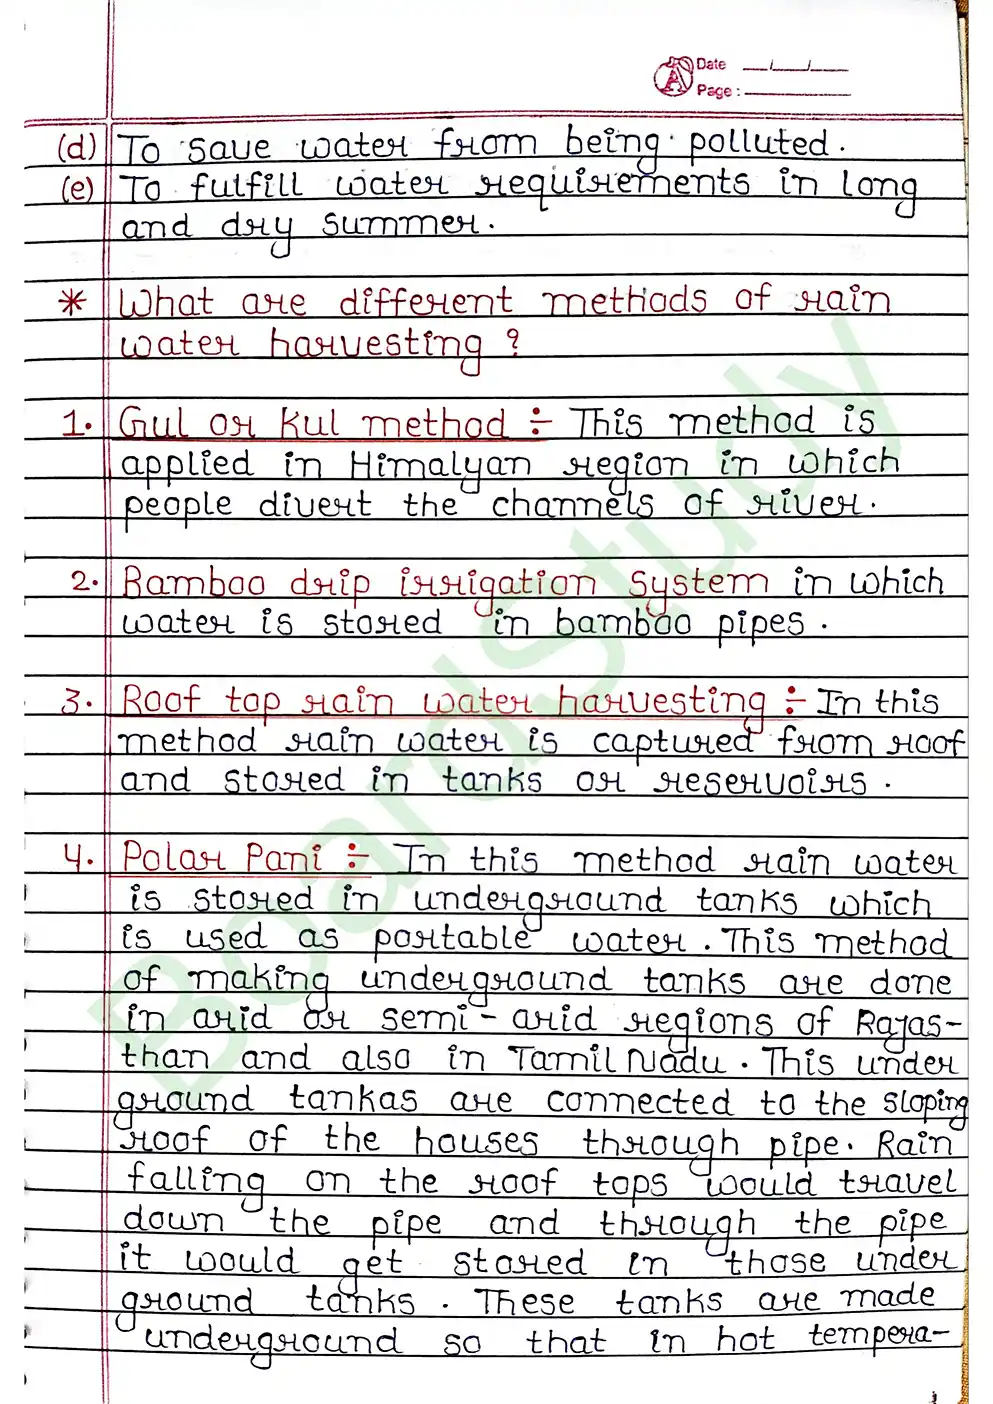 Date __/__/__
Page : ________
(d) To save water from being polluted.
(e) To fulfill water requirements in long
and dry summer.
* What are different methods of rain
water harvesting ?
1. Gul or Kul method ÷ This method is
applied in Himalyan region in which
people divert the channels of river.
2. Bamboo drip irrigation system in which
water is stored in bamboo pipes.
3. Roof top rain water harvesting ÷ In this
method rain water is captured from roof
and stored in tanks or reservoirs.
4. Polar Pani ÷ In this method rain water
is stored in underground tanks which
is used as portable water. This method
of making underground tanks are done
in arid or semi-arid regions of Rajas-
than and also in Tamil Nadu. This under
ground tankas are connected to the sloping
roof of the houses through pipe. Rain
falling on the roof tops would travel
down the pipe and through the pipe
it would get stored in those under
ground tanks. These tanks are made
underground so that in hot tempera-
BoardStudy